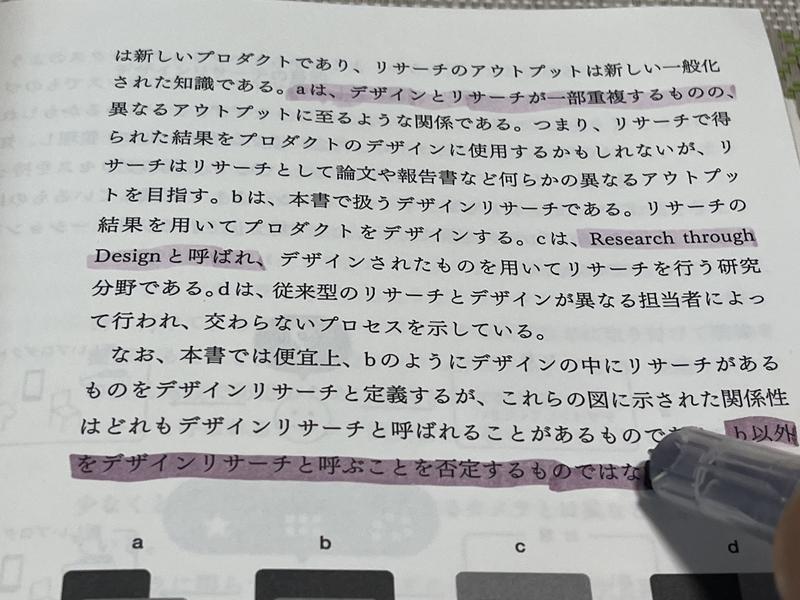 は新しいプロダクトであり、リサーチのアウトプットは新しい一般化
された知識である。aは、デザインとリサーチが一部重複するものの、
異なるアウトプットに至るような関係である。つまり、リサーチで得
られた結果をプロダクトのデザインに使用するかもしれないが、リ
サーチはリサーチとして論文や報告書など何らかの異なるアウトプッ
トを目指す。bは、本書で扱うデザインリサーチである。リサーチの
結果を用いてプロダクトをデザインする。cは、Research through
Designと呼ばれ、デザインされたものを用いてリサーチを行う研究
分野である。dは、従来型のリサーチとデザインが異なる担当者によっ
て行われ、交わらないプロセスを示している。
なお、本書では便宜上、bのようにデザインの中にリサーチがある
ものをデザインリサーチと定義するが、これらの図に示された関係性
はどれもデザインリサーチと呼ばれることがあるもので b以外
をデザインリサーチと呼ぶことを否定するものではな
a b c d